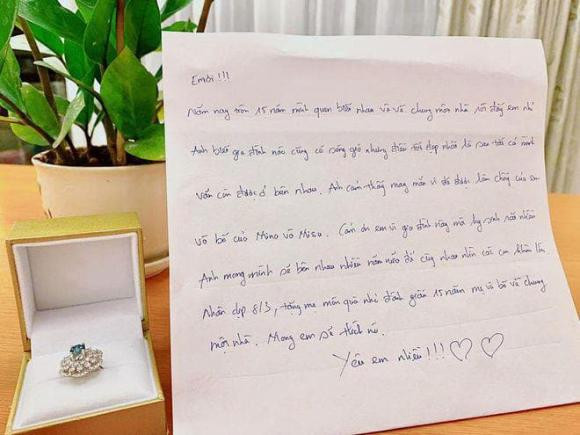 Em ơi !!!
Năm nay tròn 15 năm mình quen biết nhau và về chung một nhà rồi đấy em nhỉ
Anh biết gia đình nào cũng có sóng gió nhưng điều tốt đẹp nhất là sau tất cả mình
vẫn còn được ở bên nhau. Anh cảm thấy may mắn vì đã được làm chồng của em
và bố của Mino và Misu. Cảm ơn em vì gia đình này mà hy sinh rất nhiều
Anh mong mình sẽ bên nhau nhiều năm nữa để cùng nhau nhìn các con khôn lớn.
Nhân dịp 8/3, tặng mẹ món quà nhỏ đánh dấu 15 năm mẹ và bố về chung
một nhà. Mong em sẽ thích nó.
Yêu em nhiều !!! ♡ ♡